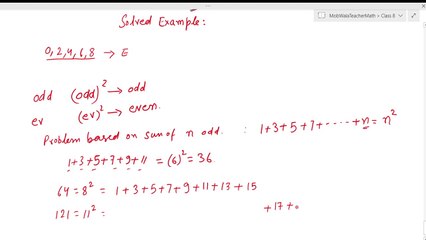 MobWalaTeacherMath > Class 8
Solved Example:
0, 2, 4, 6, 8 → E
odd (odd)² → odd
ev (ev)² → even.
Problem based on sum of n odd. : 1+3+5+7+-----+n = n²
1+3+5+7+9+11 = (6)² = 36
64 = 8² = 1+3+5+7+9+11+13+15
121 = 11² = +17+